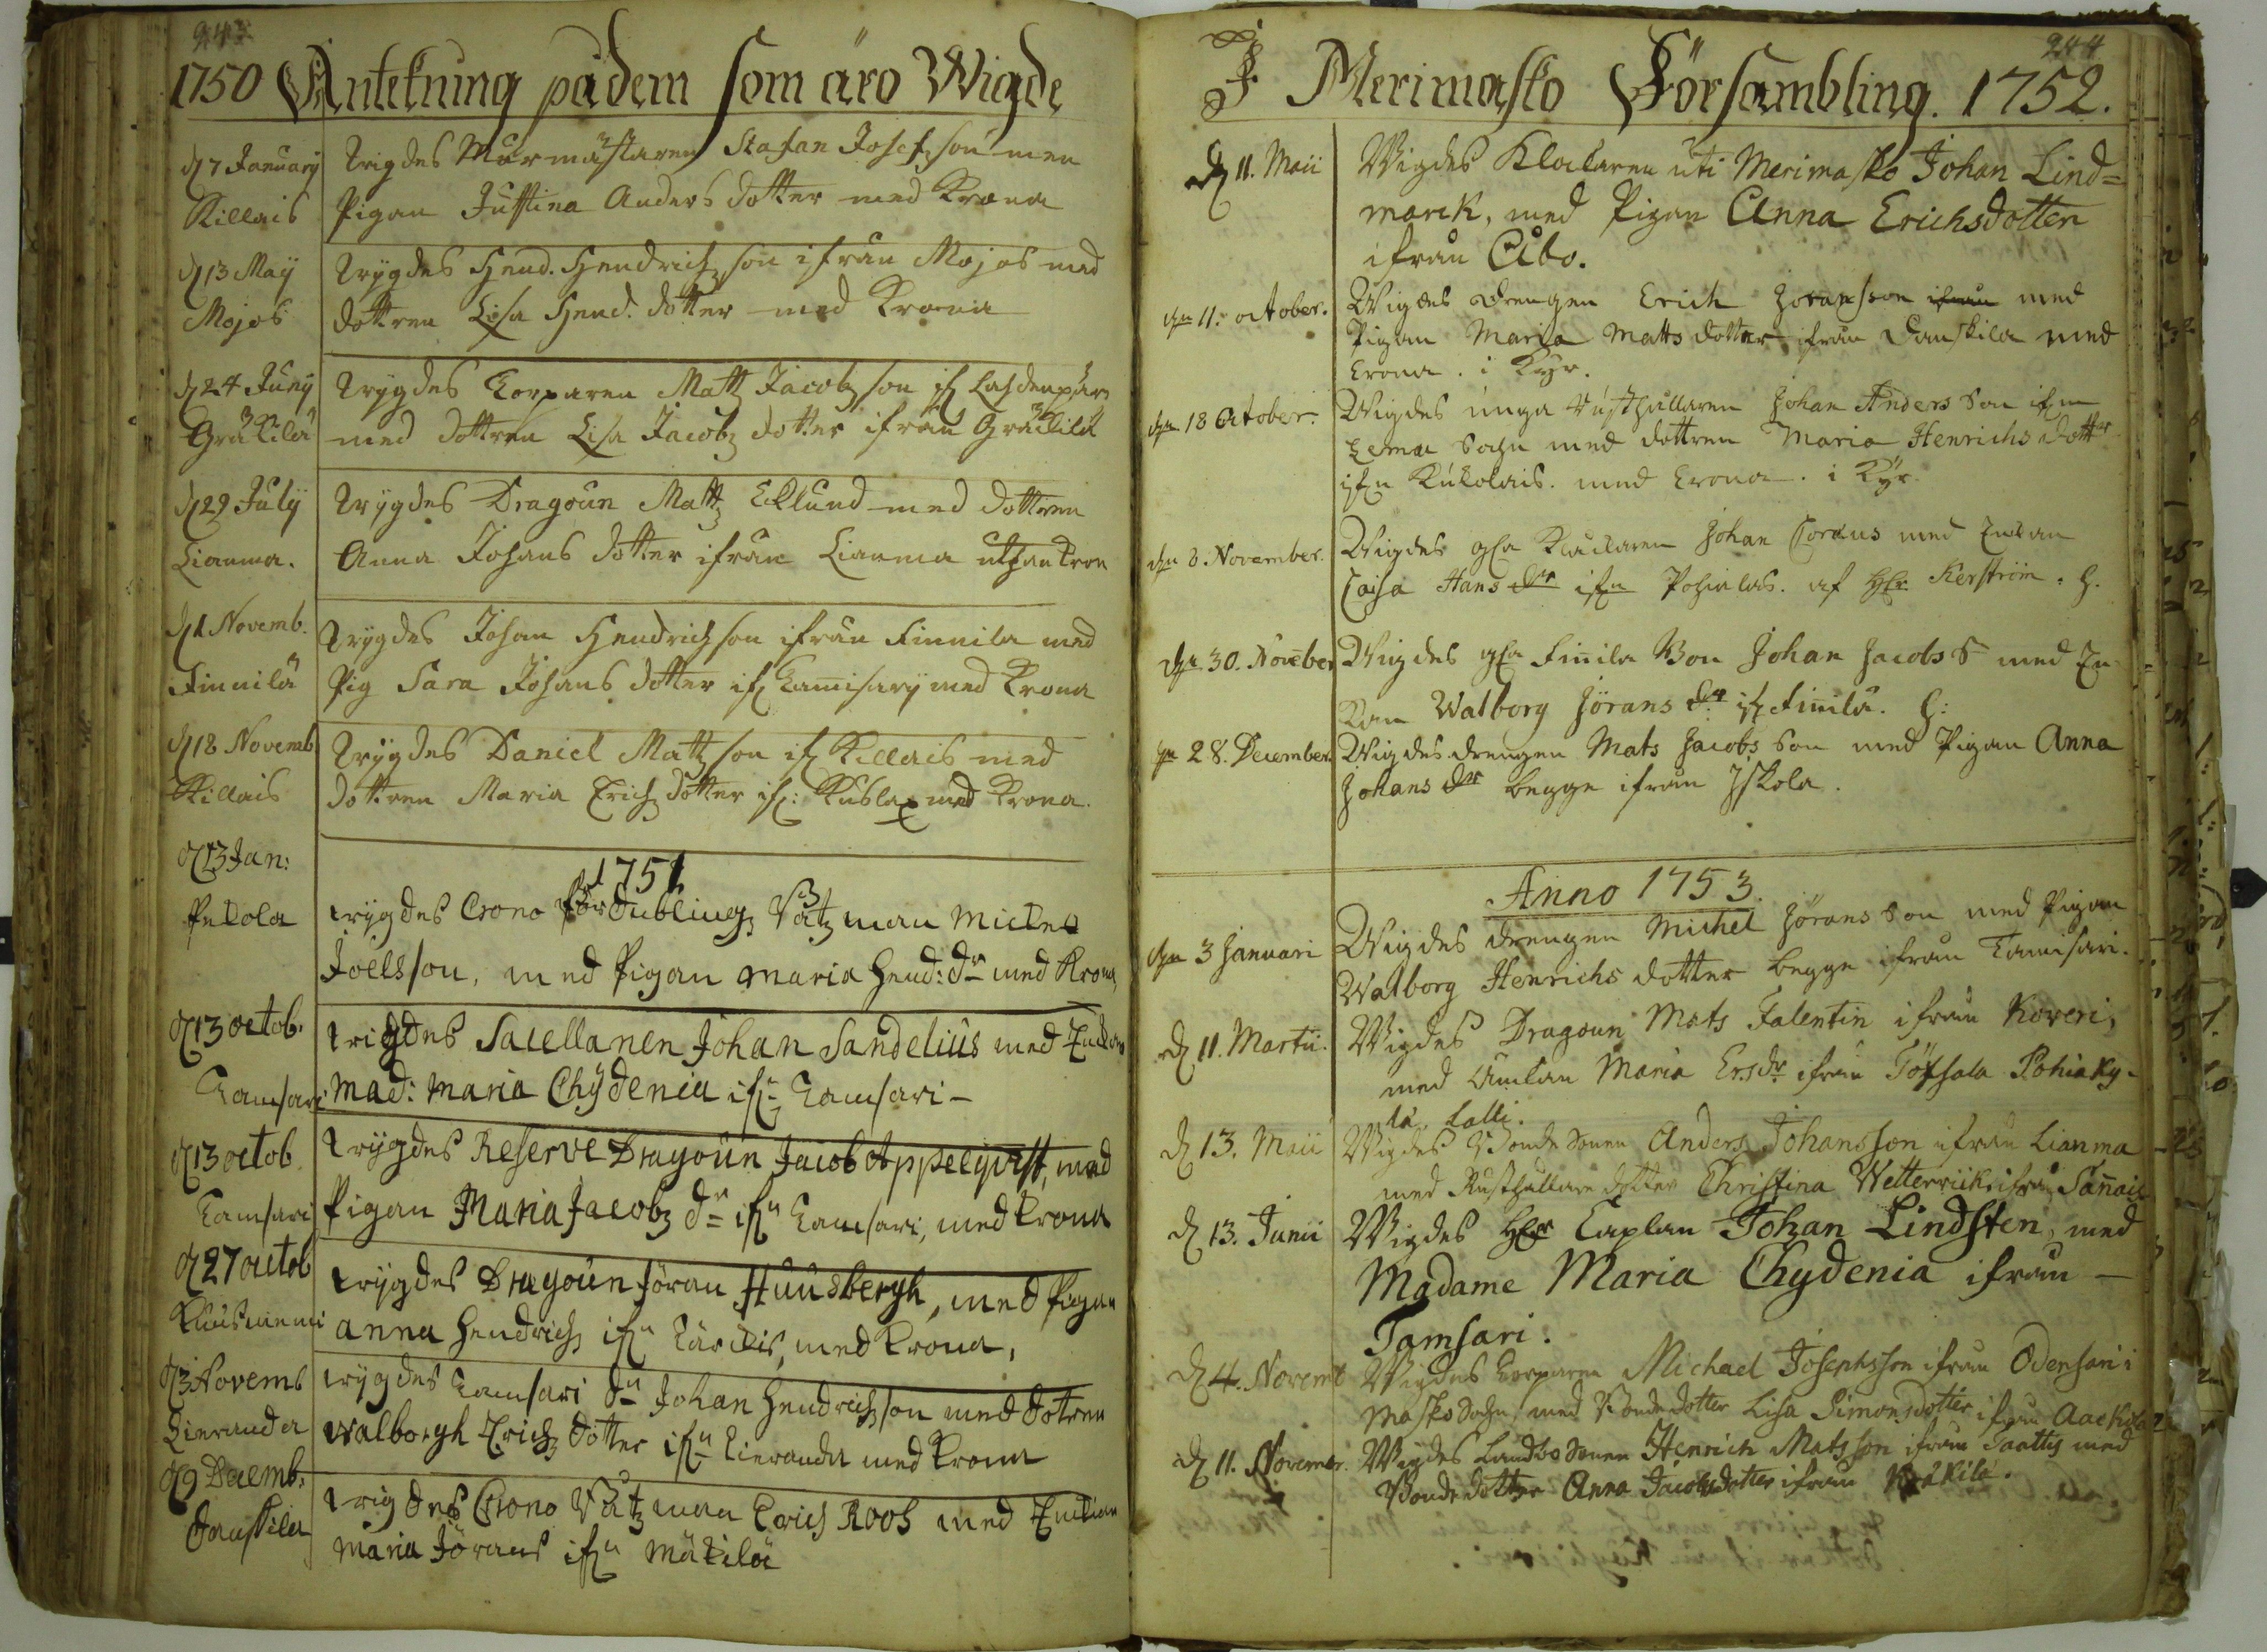 243
1750 Antekning på dem som äro Wigde
d 7 January
Killais
wigdes Murmästaren Stafan Josefz son men
Pigan Justina Anders dotter med Krona
d 13 May
Mojos
wygdes Hend. Hendrichz son ifrån Mojos med
dottren Lisa Hend. dotter med Krona
d 24 Juny
Gräkilä
wygdes Torparen Matz Jacobz son if Lahdenpärä
med dottren Lisa Jacobz dotter ifrån Gräkilä
d 29 July
Lianma.
wygdes Dragoun Matz Eklund med dottren
Anna Johans dotter ifrån Lianma uthan kron
d 1 Novemb.
Finnilä
wygdes Johan Hendrichz son ifrån Finnila med
Pig Sara Johans dotter if Tamisary med Krona
d 18 Novemb
Killais
wygdes Daniel Matz son if Killais med
dottren Maria Erichz dotter if: Kuslax med Krona.
1751
d 13 Jan:
Pekola
wygdes Crono För dublingz Båtz man Mickel
Joelsson, med Pigan Maria Hend: dr med Krona
d 13 octob.
Tamsari
wigdes Sacellanen Johan Sandelius med Enckan
Mad: Maria Chydenia ifn Tamsari -
d 13 octob
Tamsari
wygdes Reserve Dragoun Jacob Appelqvist, med
Pigan Maria Jacobz dr ifn Tamsari, med Krona
d 27 octob
Kuusniemi
wygdes Dragoun Jöran Huusbergh, med Pigan
Anna Hendrichz ifn Tärckis, med Krona,
d 3 Novemb
Lieranda
wygdes Tamsari dn Johan Hendrichz son med dotren
Walborgh Erichz dotter ifn Lieranda med Krona
d 9 Decemb.
Danskila
wigdes Crono Båtz man Erich Roos med Enckian
Maria Jörans ifn Mäkilä
244
I Merimasko Försambling. 1752.
d 11. Maii Wigdes Klockaren uti Merimasko Johan Lind=
marck, med Pigan Anna Erichsdotter
ifrån Åbo.
dn 11. october. Wigdes drengen Erich Joransson ifrån med
Pigan Maria Matts dotter ifrån Danskila med
Crona. i Kyr.
dn 18 October. Wigdes unga Rusthållaren Johan Anders Son ifrn
Lemu Sochn med dottren Maria Henrichs dottr
ifrn Kukolais. med Crona. i Kyr.
dn 8. November. Wigdes gla Klockaren Johan Toraus med Enkan
Caisa Hans dr ifrn Pohialas. af Hr Kerström. h.
dn 30. November Wigdes gla Finila Bon Johan Jacobs S med En-
kan Walborg Jörans dr if Finnilä. h:
dn 28. December. Wigdes drengen Mats Jacobs Son med Pigan Anna
Johans dr begge ifrån Iskola.
Anno 1753.
dn 3 Januari Wigdes drengen Michel Jörans Son med Pigan
Walborg Henrichs dotter begge ifrån Tamisari.
d 11. Martii. Wigdes Dragoun Mats Falentin ifrån Koveri,
med Enckan Maria Ersdr ifrån Töfsala Pohiaky-
lä. Lalli.
d 13. Maii Wigdes Bonde Sonen Anders Johansson ifrån Lianma
med Rusthållare dotter Christina Wetterviik ifrån Sannais
d 13. Junii Wigdes Hr Caplan Johan Lindsten, med
Madame Maria Chydenia ifrån -
Tamsari.
d 4. Novemb Wigdes Torparen Michael Josephsson ifrån Odensari i
Masko Sochn, med Bonde dotter Lisa Simonsdotter ifrån Aackola
d 11. Novembr. Wigdes Landbo Sonen Henrich Matsson ifrån Taattis med
Bonde dotter Anna Jacobsdotter ifrån Kräkilä.